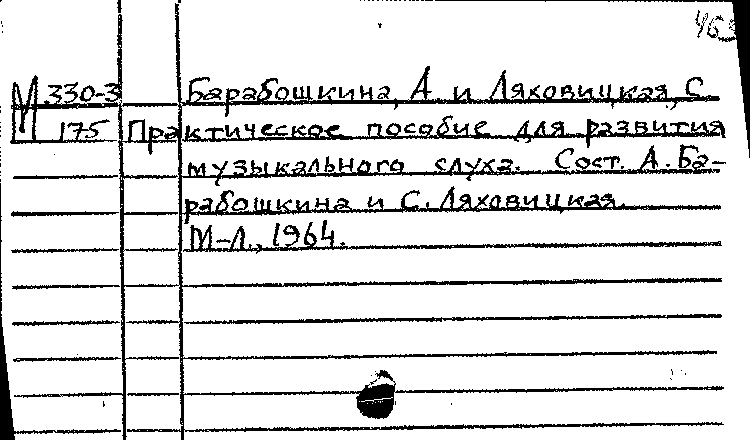 М 330-3 Барабошкина, А. и Ляховицкая, С.
175 Практическое пособие для развития
музыкального слуха. Сост. А. Ба-
рабошкина и С. Ляховицкая.
М-Л., 1964.